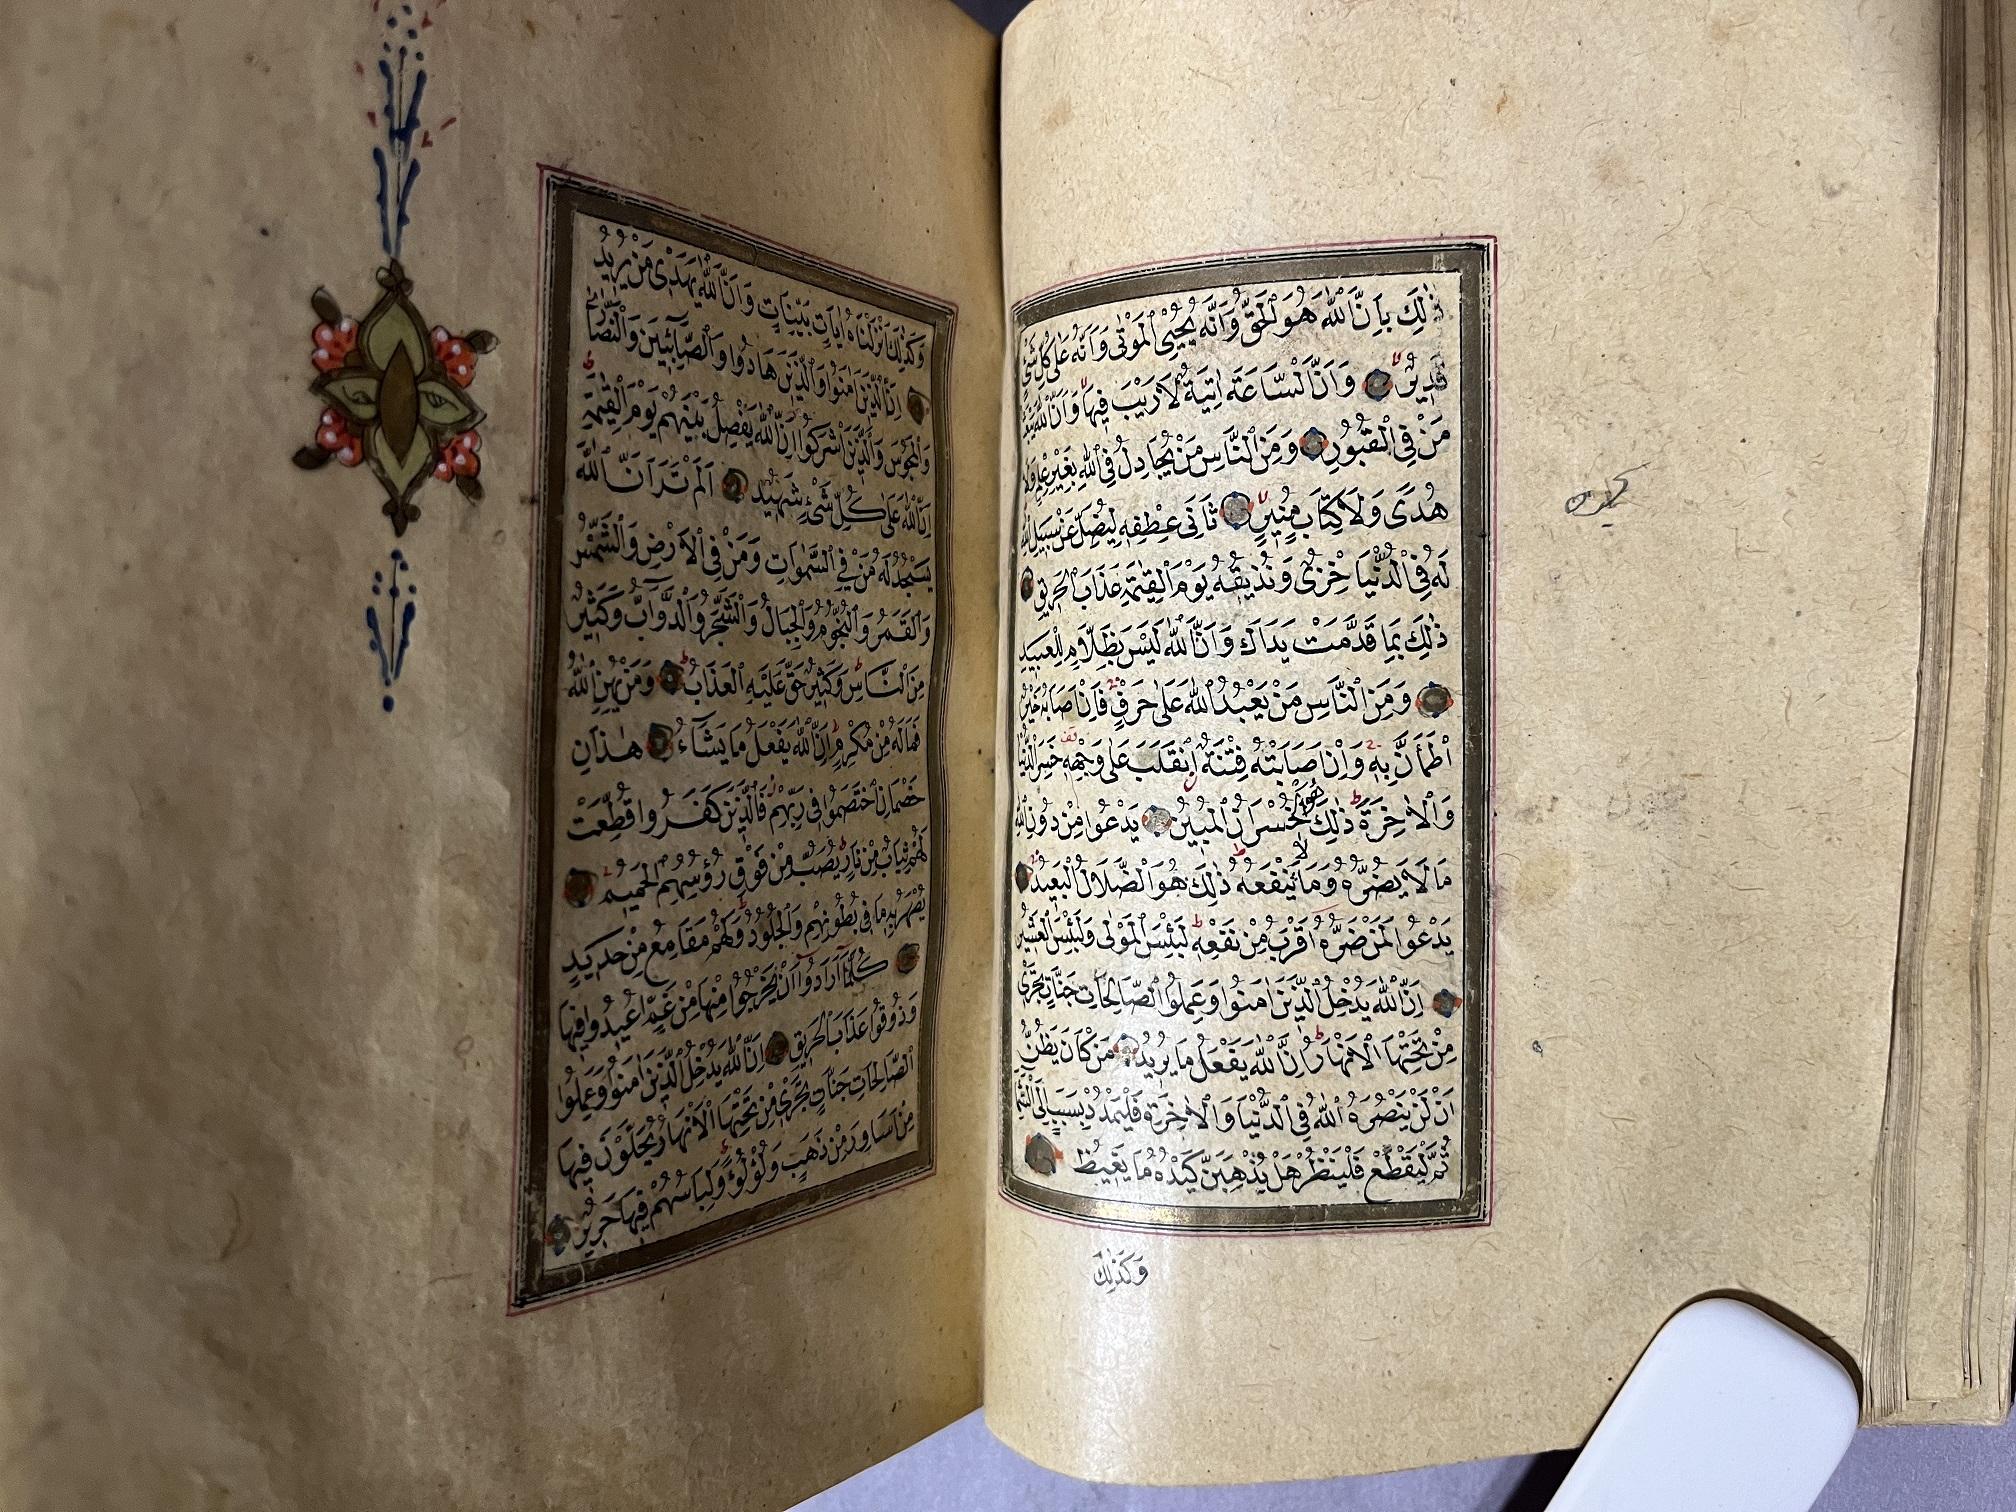 ذٰلِكَ بِاَنَّ اللّٰهَ هُوَ الْحَقُّ وَاَنَّهُ يُحْيِي الْمَوْتٰى وَاَنَّهُ عَلٰى كُلِّ شَيْءٍ
قَدِيرٌ وَاَنَّ السَّاعَةَ اٰتِيَةٌ لَا رَيْبَ فِيهَا وَاَنَّ اللّٰهَ يَبْعَثُ
مَنْ فِي الْقُبُورِ وَمِنَ النَّاسِ مَنْ يُجَادِلُ فِي اللّٰهِ بِغَيْرِ عِلْمٍ وَلَا
هُدًى وَلَا كِتَابٍ مُنِيرٍ ثَانِيَ عِطْفِهِ لِيُضِلَّ عَنْ سَبِيلِ اللّٰهِ
لَهُ فِي الدُّنْيَا خِزْيٌ وَنُذِيقُهُ يَوْمَ الْقِيٰمَةِ عَذَابَ الْحَرِيقِ
ذٰلِكَ بِمَا قَدَّمَتْ يَدَاكَ وَاَنَّ اللّٰهَ لَيْسَ بِظَلَّامٍ لِلْعَبِيدِ
وَمِنَ النَّاسِ مَنْ يَعْبُدُ اللّٰهَ عَلٰى حَرْفٍ فَاِنْ اَصَابَهُ خَيْرٌ
اطْمَاَنَّ بِهِ وَاِنْ اَصَابَتْهُ فِتْنَةٌ انْقَلَبَ عَلٰى وَجْهِهِ خَسِرَ الدُّنْيَا
وَالْاٰخِرَةَ ذٰلِكَ هُوَ الْخُسْرَانُ الْمُبِينُ يَدْعُوا مِنْ دُونِ اللّٰهِ
مَا لَا يَضُرُّهُ وَمَا لَا يَنْفَعُهُ ذٰلِكَ هُوَ الضَّلَالُ الْبَعِيدُ
يَدْعُوا لَمَنْ ضَرُّهُ اَقْرَبُ مِنْ نَفْعِهِ لَبِئْسَ الْمَوْلٰى وَلَبِئْسَ الْعَشِيرُ
اِنَّ اللّٰهَ يُدْخِلُ الَّذِينَ اٰمَنُوا وَعَمِلُوا الصَّالِحَاتِ جَنَّاتٍ تَجْرِي
مِنْ تَحْتِهَا الْاَنْهَارُ اِنَّ اللّٰهَ يَفْعَلُ مَا يُرِيدُ مَنْ كَانَ يَظُنُّ
اَنْ لَنْ يَنْصُرَهُ اللّٰهُ فِي الدُّنْيَا وَالْاٰخِرَةِ فَلْيَمْدُدْ بِسَبَبٍ اِلَى السَّمَاءِ
ثُمَّ لْيَقْطَعْ فَلْيَنْظُرْ هَلْ يُذْهِبَنَّ كَيْدُهُ مَا يَغِيظُ
وَكَذٰلِكَ
وَكَذٰلِكَ اَنْزَلْنَاهُ اٰيَاتٍ بَيِّنَاتٍ وَاَنَّ اللّٰهَ يَهْدِي مَنْ يُرِيدُ
اِنَّ الَّذِينَ اٰمَنُوا وَالَّذِينَ هَادُوا وَالصَّابِئِينَ وَالنَّصَارٰى
وَالْمَجُوسَ وَالَّذِينَ اَشْرَكُوا اِنَّ اللّٰهَ يَفْصِلُ بَيْنَهُمْ يَوْمَ الْقِيٰمَةِ
اِنَّ اللّٰهَ عَلٰى كُلِّ شَيْءٍ شَهِيدٌ اَلَمْ تَرَ اَنَّ اللّٰهَ
يَسْجُدُ لَهُ مَنْ فِي السَّمٰوَاتِ وَمَنْ فِي الْاَرْضِ وَالشَّمْسُ
وَالْقَمَرُ وَالنُّجُومُ وَالْجِبَالُ وَالشَّجَرُ وَالدَّوَآبُّ وَكَثِيرٌ
مِنَ النَّاسِ وَكَثِيرٌ حَقَّ عَلَيْهِ الْعَذَابُ وَمَنْ يُهِنِ اللّٰهُ
فَمَا لَهُ مِنْ مُكْرِمٍ اِنَّ اللّٰهَ يَفْعَلُ مَا يَشَآءُ هٰذَانِ
خَصْمَانِ اخْتَصَمُوا فِي رَبِّهِمْ فَالَّذِينَ كَفَرُوا قُطِّعَتْ
لَهُمْ ثِيَابٌ مِنْ نَارٍ يُصَبُّ مِنْ فَوْقِ رُؤُسِهِمُ الْحَمِيمُ
يُصْهَرُ بِهِ مَا فِي بُطُونِهِمْ وَالْجُلُودُ وَلَهُمْ مَقَامِعُ مِنْ حَدِيدٍ
كُلَّمَآ اَرَادُوٓا اَنْ يَخْرُجُوا مِنْهَا مِنْ غَمٍّ اُعِيدُوا فِيهَا
وَذُوقُوا عَذَابَ الْحَرِيقِ اِنَّ اللّٰهَ يُدْخِلُ الَّذِينَ اٰمَنُوا وَعَمِلُوا
الصَّالِحَاتِ جَنَّاتٍ تَجْرِي مِنْ تَحْتِهَا الْاَنْهَارُ يُحَلَّوْنَ فِيهَا
مِنْ اَسَاوِرَ مِنْ ذَهَبٍ وَلُؤْلُؤًا وَلِبَاسُهُمْ فِيهَا حَرِيرٌ